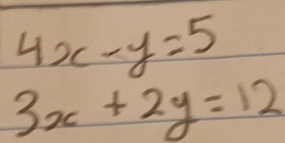 4x-y=5
3x + 2y = 12